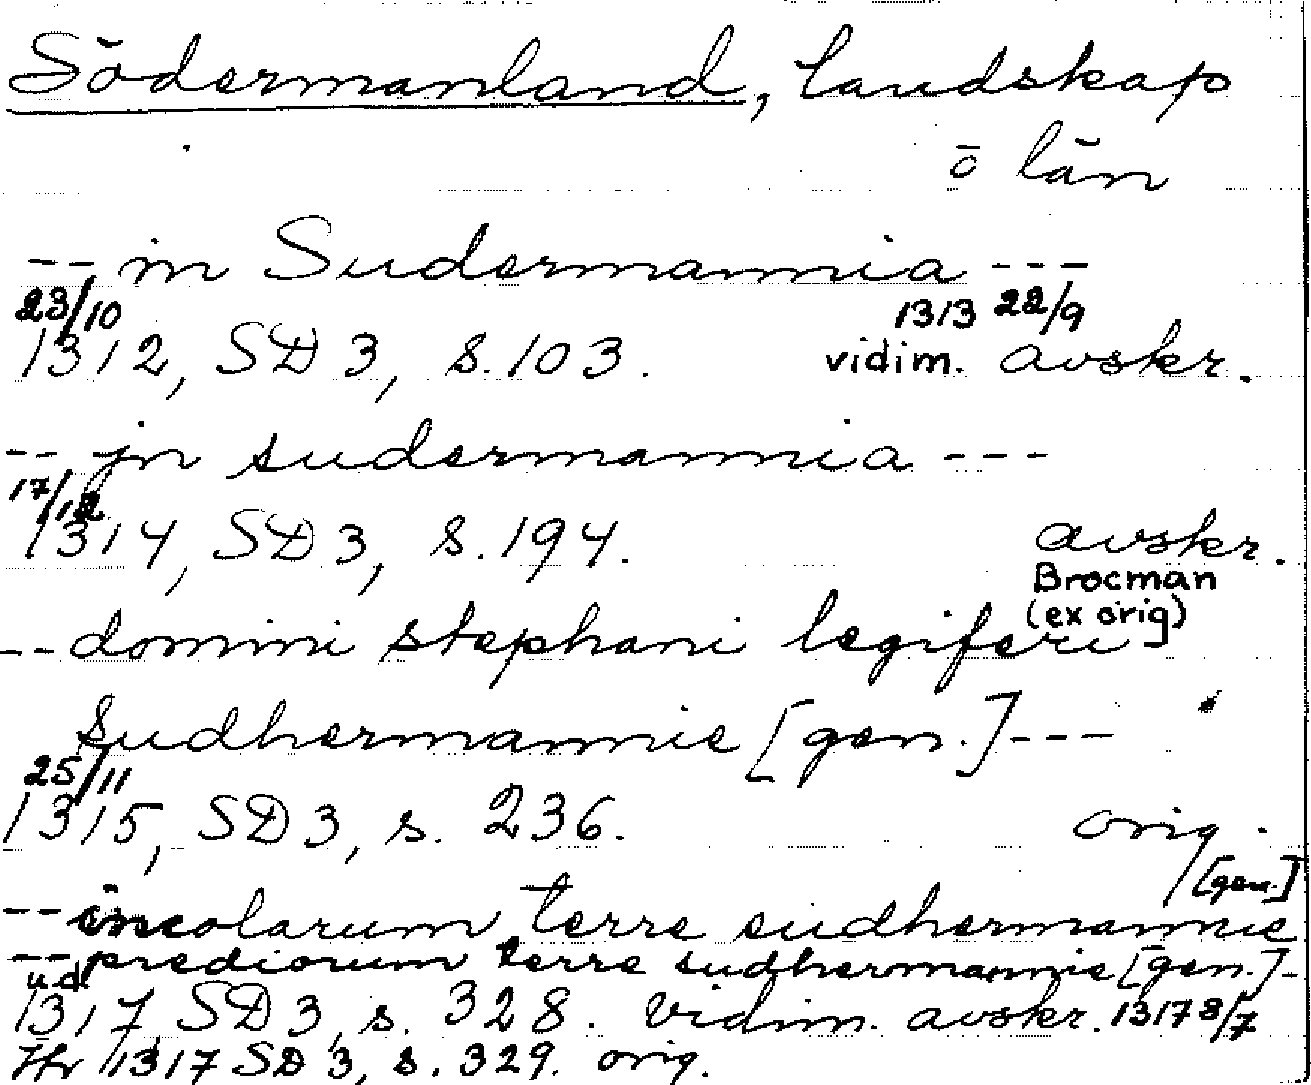 Södermanland, landskap
o län
-- in Sudermannia ---
23/10 1313 22/9
1312, SD 3, s. 103. vidim. avskr.
-- jn sudermannia ---
17/12
1314, SD 3, s. 194. avskr.
Brocman
(ex orig)
-- domini stephani legiferi
sudhermannie [gen.] ---
25/11
1315, SD 3, s. 236. orig.
[gen.]
-- incolarum terre sudhermannie
-- prediorum terre sudhermannie [gen.] -
ud
1317, SD 3, s. 328. vidim. avskr. 1317 8/7
1317 SD 3, s. 329. orig.